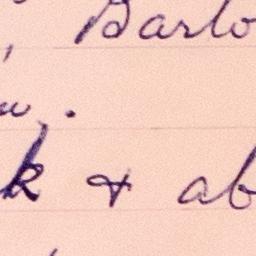 Barlo
k & ab